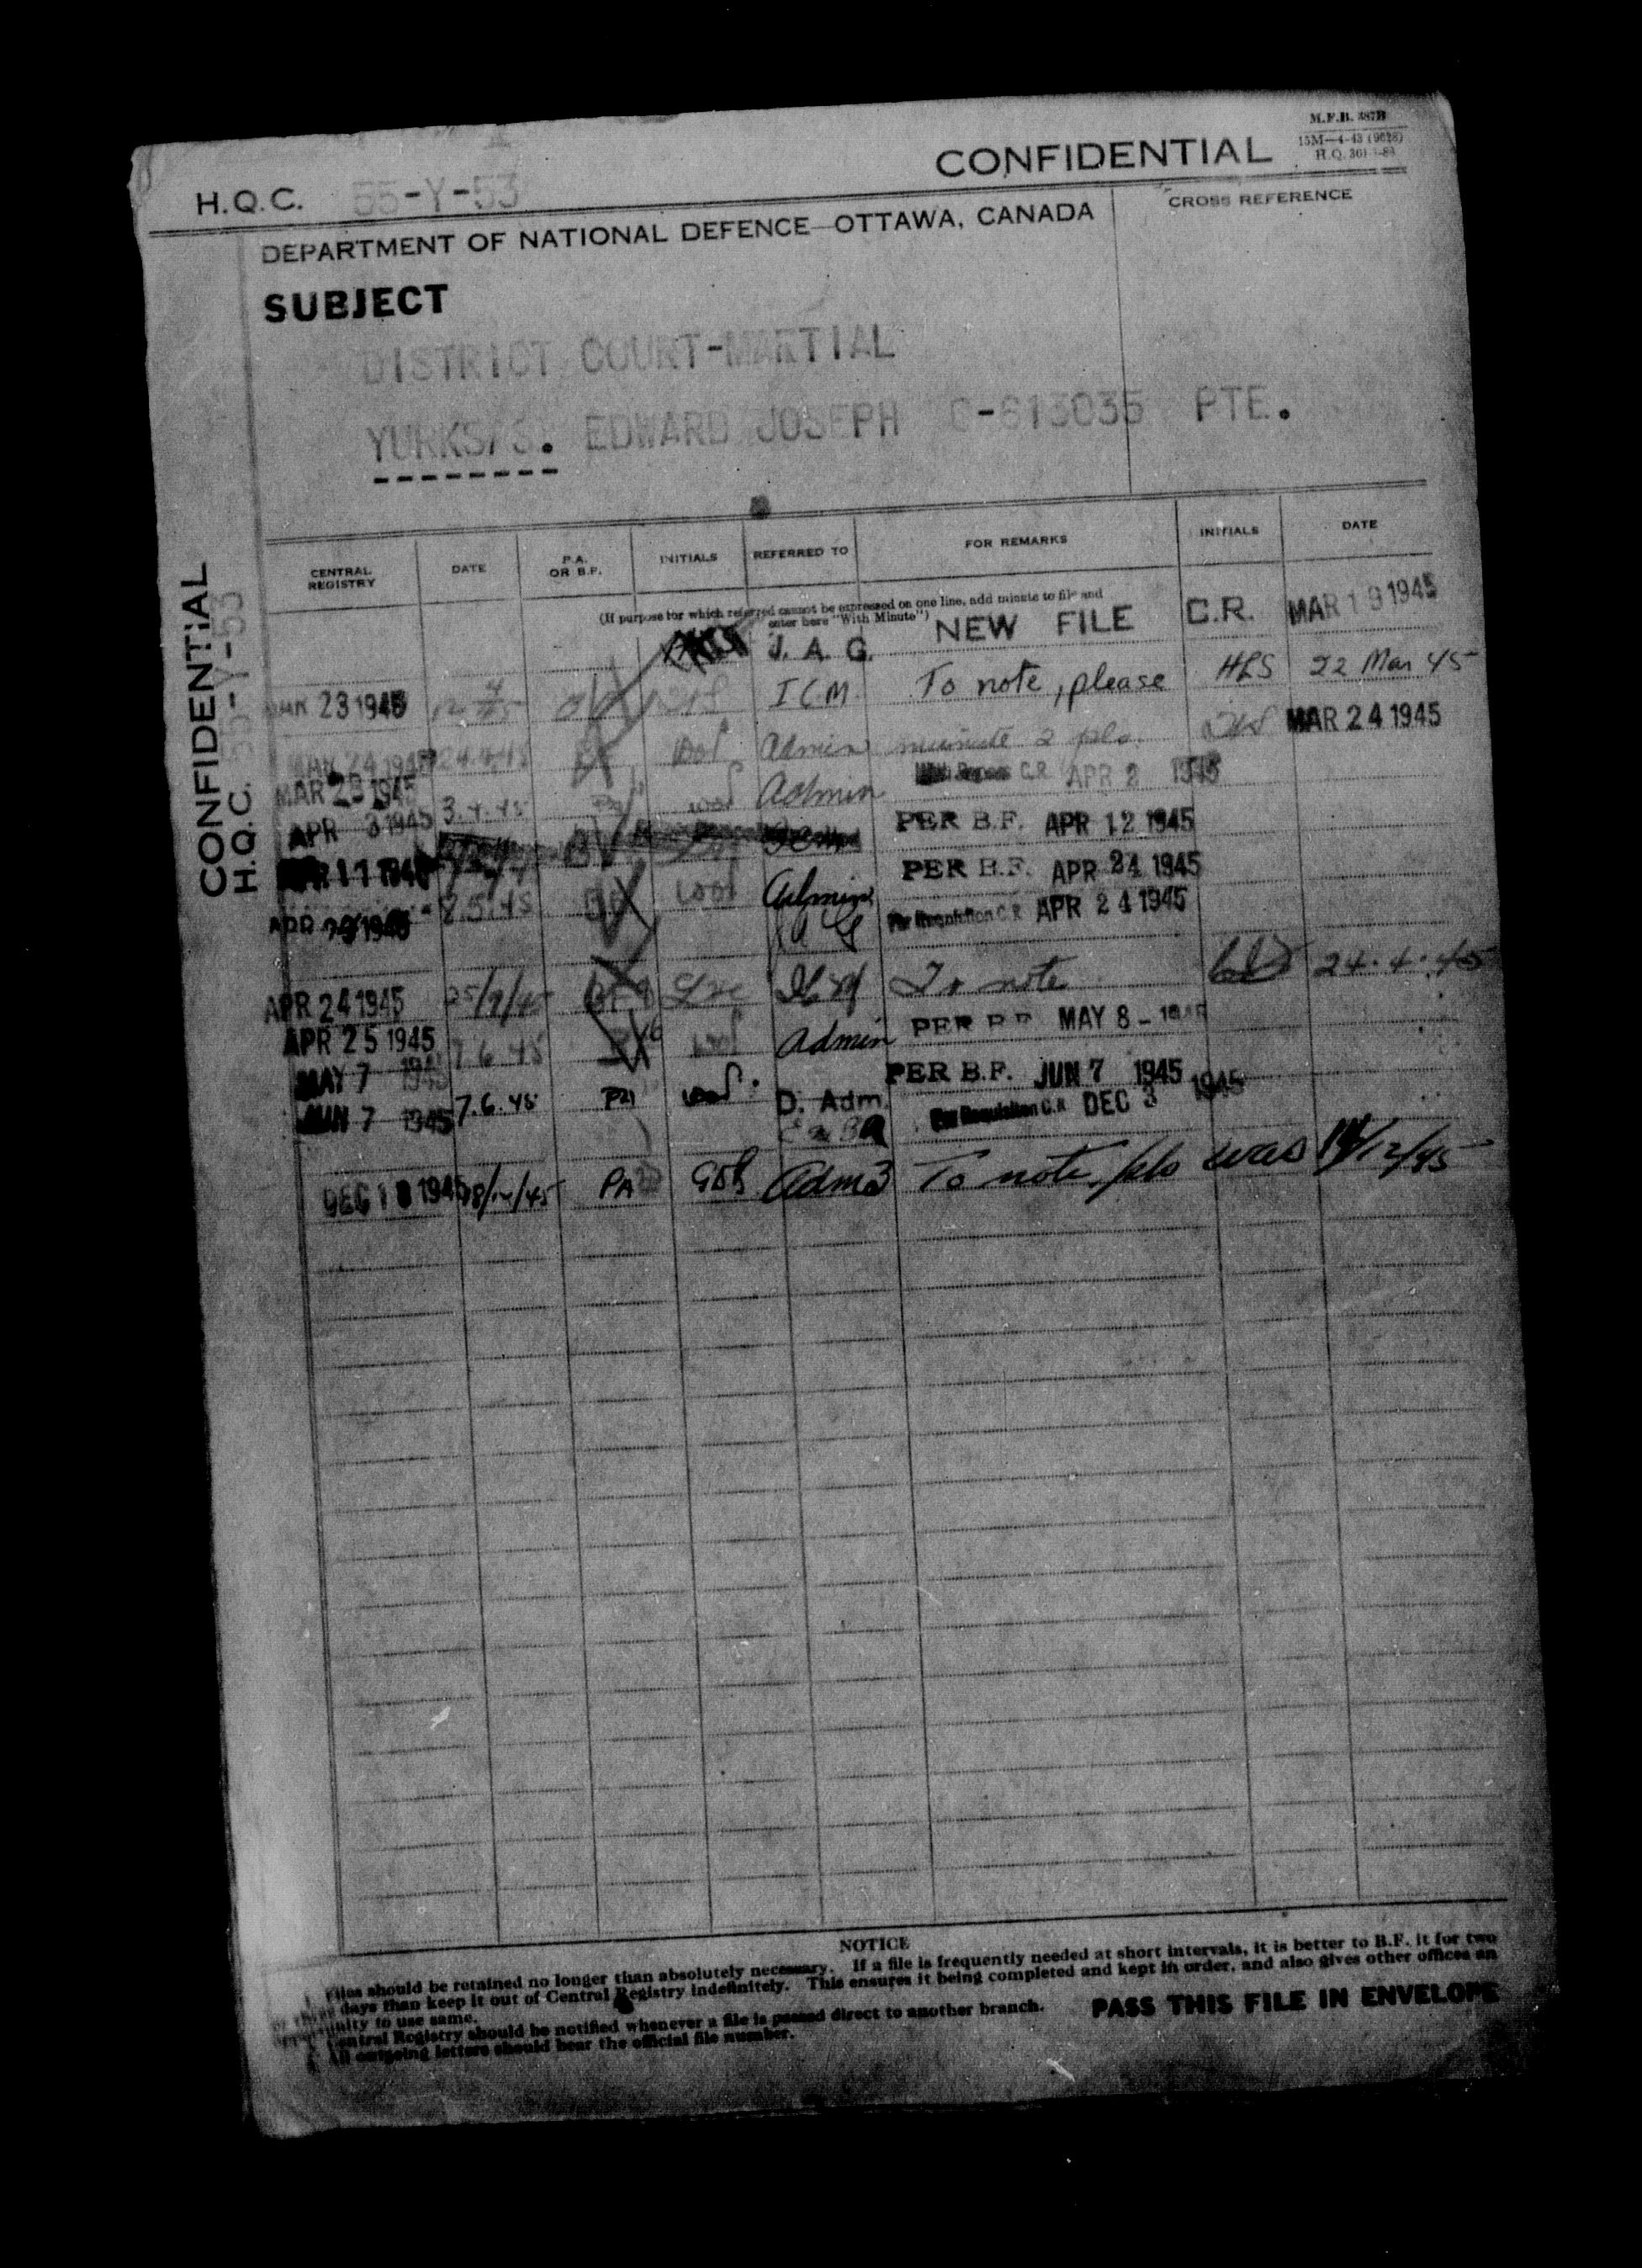 M.F.B. 387B
CONFIDENTIAL
H.Q.C. 55-Y-53
CROSS REFERENCE
DEPARTMENT OF NATIONAL DEFENCE—OTTAWA, CANADA
SUBJECT
DISTRICT COURT-MARTIAL
EDWARD JOSEPH C-613035 PTE.
CONFIDENTIAL
H.Q.C. 55-Y-53
CENTRAL REGISTRY DATE P.A. OR B.F. INITIALS REFERRED TO FOR REMARKS INITIALS DATE
(If purpose for which referred cannot be expressed on one line, add minute to file and
enter here "With Minute")
J. A. G. NEW FILE C.R. MAR 19 1945
23 1945 I C M. To note, please HLS 22 Mar 45
MAR 24 1945 24.4.45 Admin minute 2 pls. MAR 24 1945
MAR 28 1945 Admin C.R. APR 2 1945
APR 3 1945 3.4.45 PER B.F. APR 12 1945
APR 11 1945 Admin PER B.F. APR 24 1945
2.5.45 BF Per Requisition C.R. APR 24 1945
APR 24 1945 25/4/45 To note 24.4.45
APR 25 1945 7.6.45 Admin PER B.F. MAY 8 - 1945
MAY 7 1945 PER B.F. JUN 7 1945
JUN 7 1945 7.6.45 PA D. Adm. Per Requisition C.R. DEC 3 1945
DEC 18 1945 18/12/45 PA Adm3 To note, pls was 14/12/45
NOTICE
Files should be retained no longer than absolutely necessary. If a file is frequently needed at short intervals, it is better to B.F. it for two
or three days than keep it out of Central Registry indefinitely. This ensures it being completed and kept in order, and also gives other offices an
opportunity to use same.
Central Registry should be notified whenever a file is passed direct to another branch.
All outgoing letters should bear the official file number.
PASS THIS FILE IN ENVELOPE